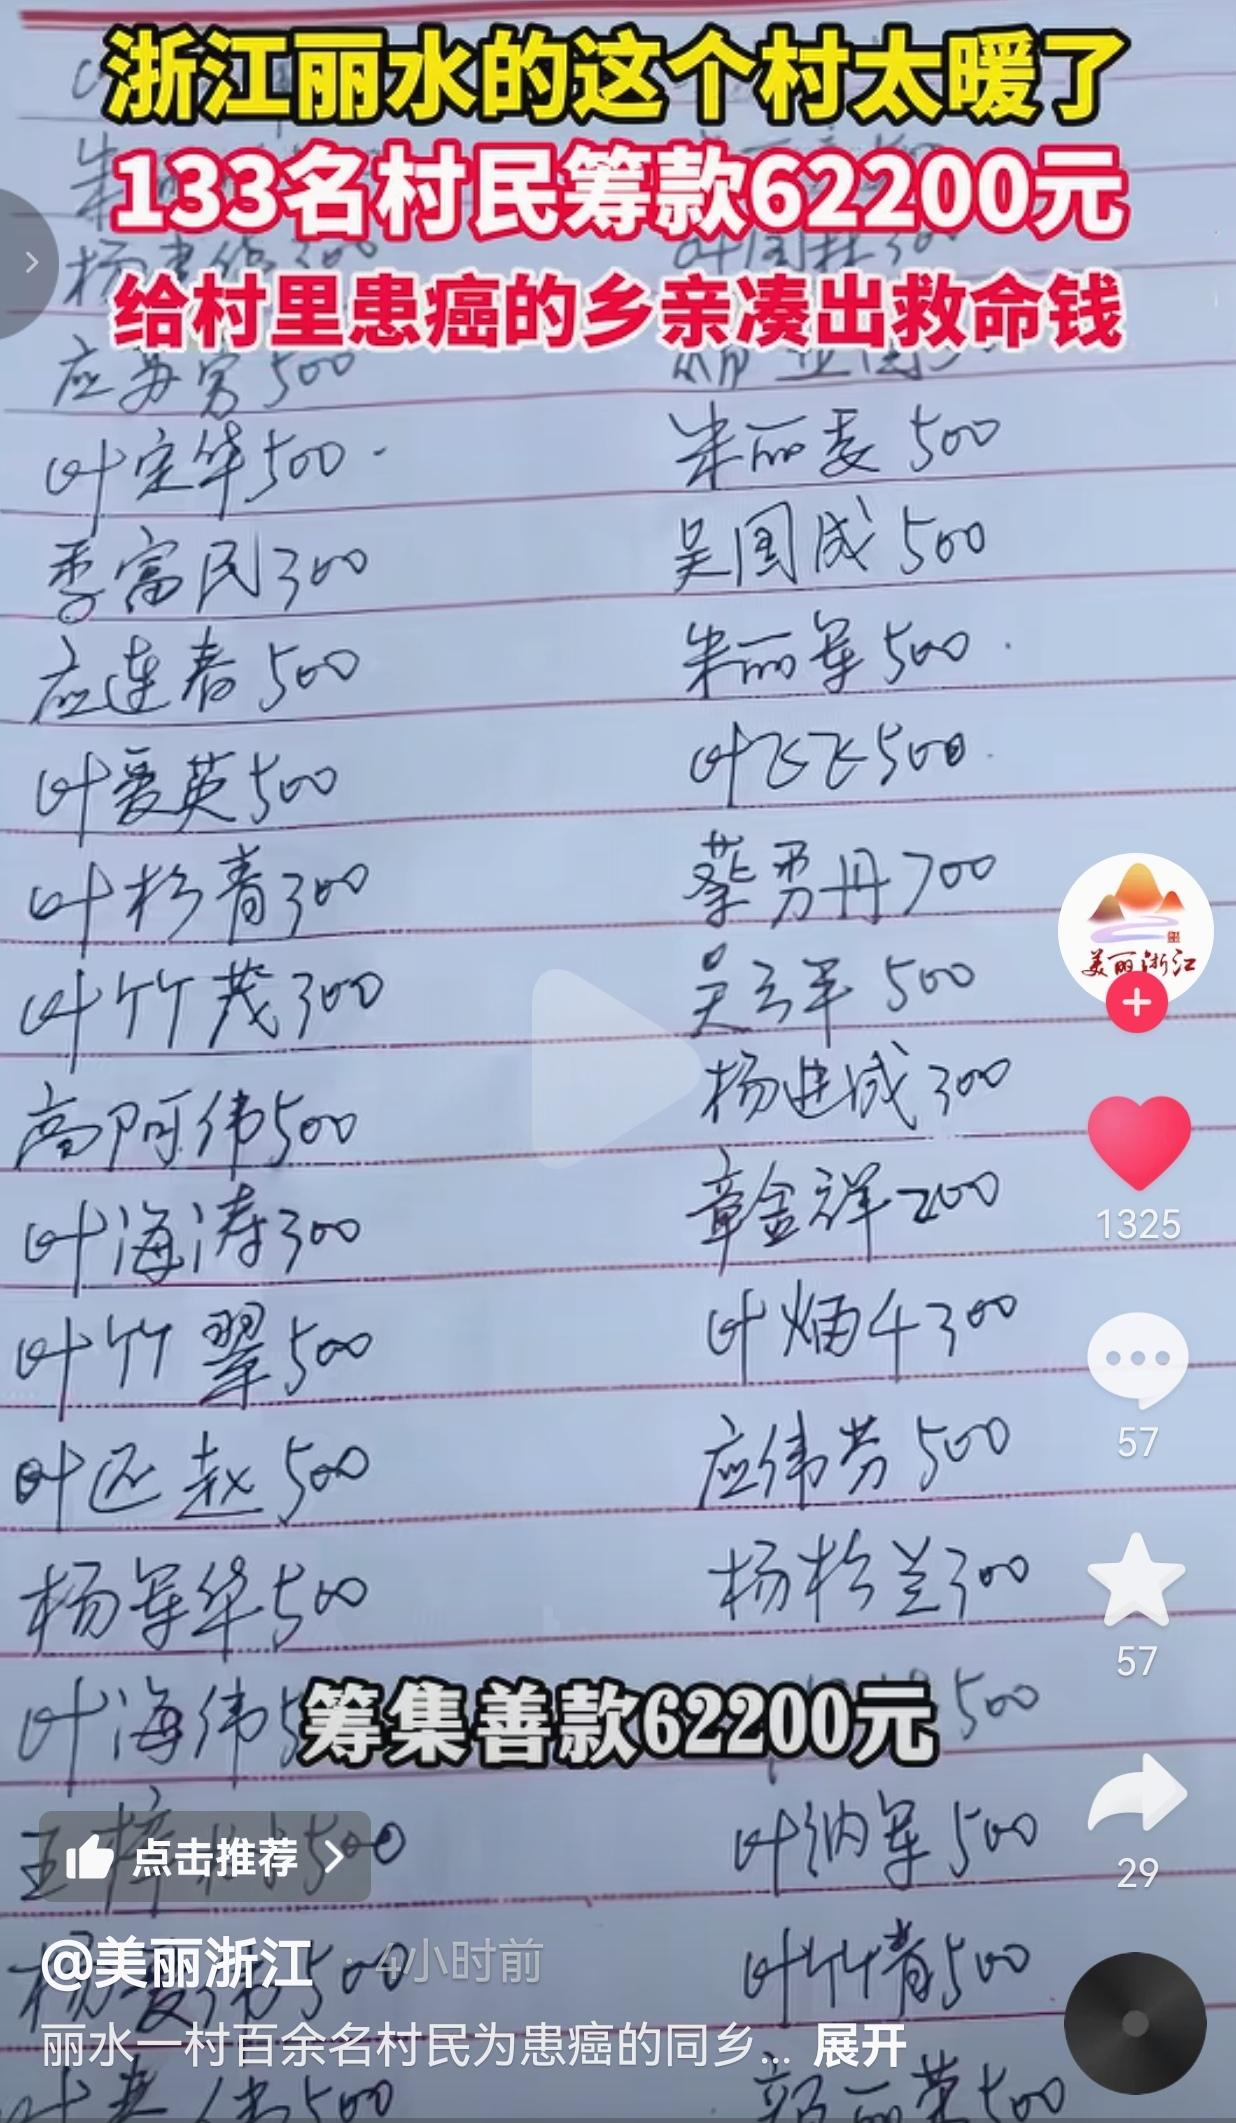 浙江丽水的这个村太暖了
133名村民筹款62200元
给村里患癌的乡亲凑出救命钱
应苏宽500
叶宗华500
朱丽委500
季富民300
吴国成500
应连春500
朱丽军500
叶爱英500
叶飞飞500
叶杉青300
蔡勇丹700
叶竹茂300
吴云平500
高阿伟500
杨进成300
叶海涛300
章金祥200
叶竹翠500
叶炳千300
叶匹赵500
应伟芳500
杨军华500
杨杉兰300
叶海伟5
500
筹集善款62200元
500
叶纳军500
点击推荐
叶竹青500
@美丽浙江 · 4小时前
丽水一村百余名村民为患癌的同乡... 展开
伟500
颜丽英500
美丽浙江
1325
57
57
29